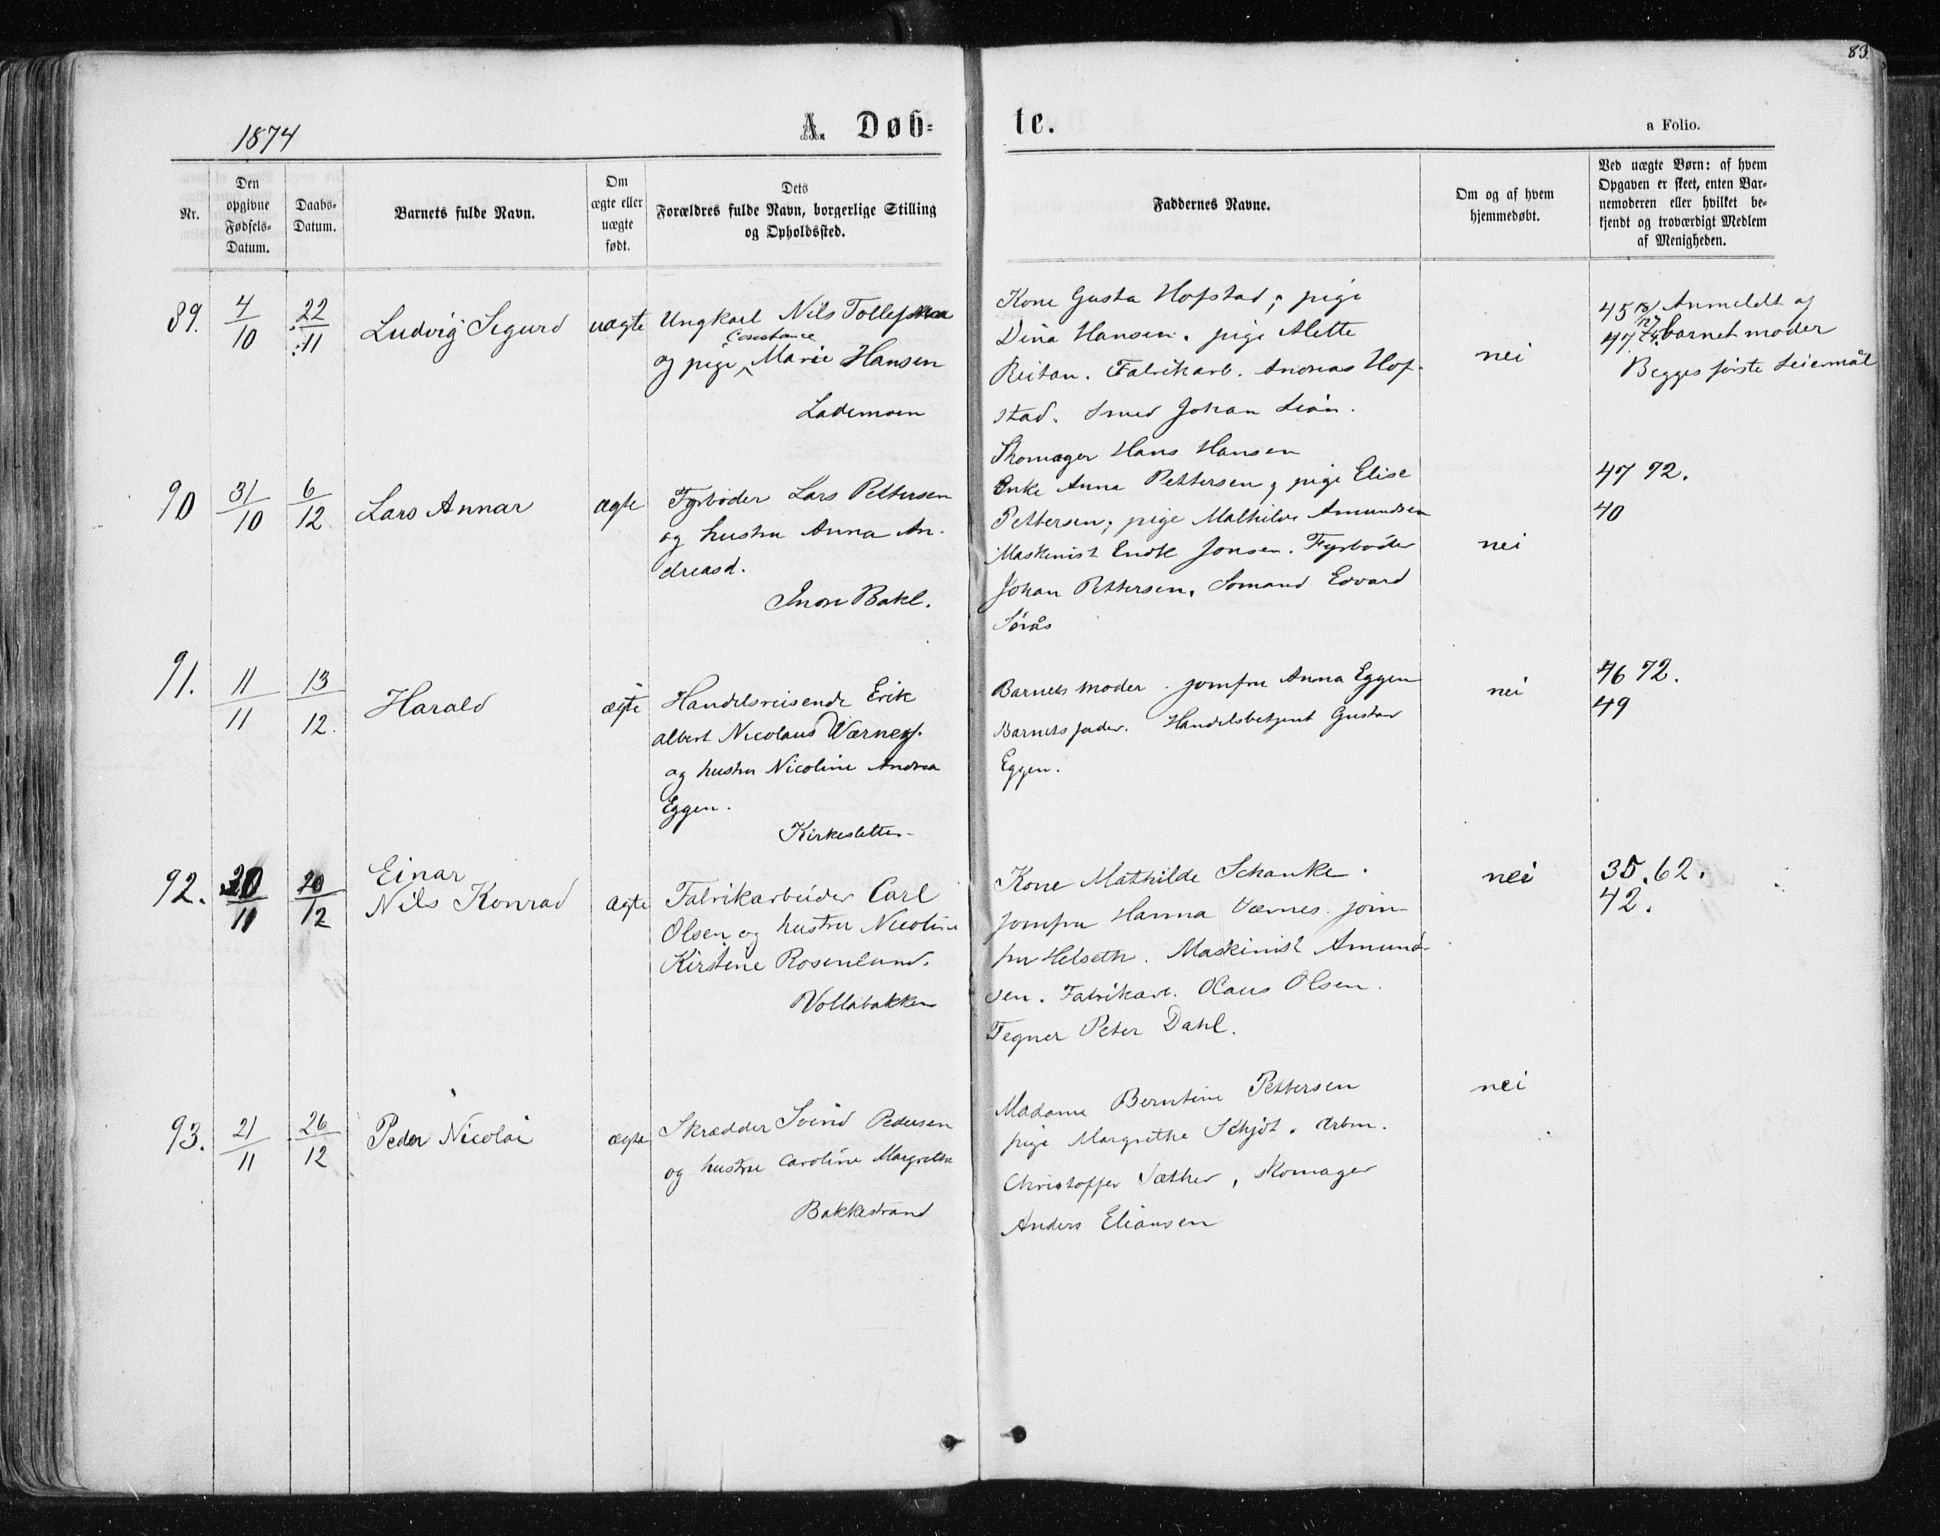 83
1874
A. Døb- te.
a Folio.
Nr.
Den opgivne Fødsels-Datum.
Daabs-Datum.
Barnets fulde Navn.
Om ægte eller uægte født.
Dets Forældres fulde Navn, borgerlige Stilling og Opholdssted.
Faddernes Navne.
Om og af hvem hjemmedøbt.
Ved uægte Børn: af hvem Opgaven er skeet, enten Barnemoderen eller hvilket bekjendt og troværdigt Medlem af Menigheden.
89. 4/10 22/11 Ludvig Sigurd uægte
Ungkarl Nils Tollefsen
Constance
og pige Marie Hansen
Lademoen
Kone Gusta Hofstad; pige
Dina Hansen. pige Alette
Reitan. Fabrikarb. Andreas Hof-
stad. Smed Johan
Skomager Hans Hansen
nei
45 Anmeldt af
47 barnet moder
Begges første Leiermål
90 31/10 6/12 Lars Annar ægte
Fyrbøder Lars Pettersen
og hustru Anna An-
dreasd.
Indre Bakl.
Enke Anna Pettersen; pige Elise
Pettersen; pige Mathilde Amundsen
Maskinist Jonsen. Fyrbøder
Johan Pettersen. Sømand Edvard
Sørås
nei
47 72.
40
91. 11/11 13/12. Harald ægte
Handelsreisende Erik
Albert Nicolaus
og hustru Nicoline Andrea
Eggen.
Kirkesletten
Barnets moder. jomfru Anna Eggen
Barnets fader. Handelsbetjent Gustav
Eggen.
nei
46 72.
49
92. 20/11 20/12
Einar
Nils Konrad ægte
Fabrikarbeider Carl
Olsen og hustru Nicoline
Kirstine Rosenlund.
Vollabakken
Kone Mathilde Schanke.
jomfru Hanna Værnes. jom-
fru Helseth. Maskinist Amund-
sen. Fabrikarb. Olaus Olsen.
Tegner Peter Dahl.
nei
35. 62.
42.
93. 21/11 26/12 Peder Nicolai ægte
Skrædder Svend Pedersen
og hustru Caroline Margrethe
Bakkestrand
Madame Berntine Pettersen
pige Margrethe Schjøt. Arbm.
Christoffer Sæther, skomager
Anders Eliansen
nei